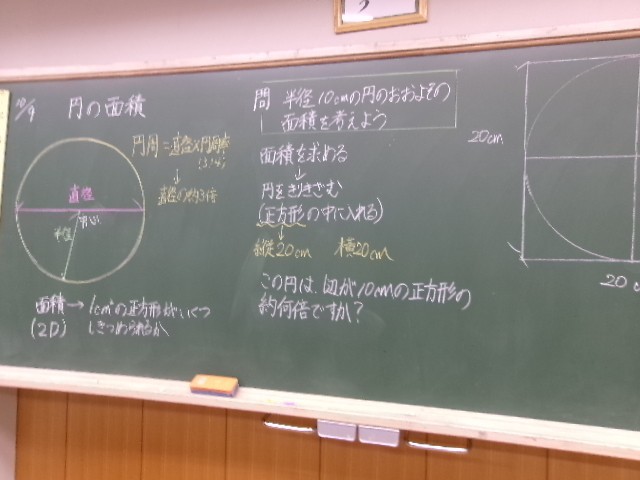 10/9 円の面積
円周=直径×円周率
(3.14)
↓
直径の約3倍
直径
中心
半径
面積→1cm²の正方形がいくつ
(2D) しきつめられるか
問 半径10cmの円のおおよその
面積を考えよう
面積を求める
↓
円をきりきざむ
(正方形の中に入れる)
↓
縦20cm 横20cm
この円は、辺が10cmの正方形の
約何倍ですか?
20cm
20c